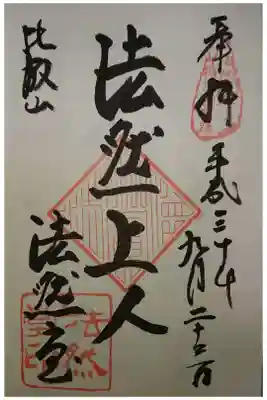 奉拝
平成三十年
九月二十二日
法然上人
比叡山
法然堂